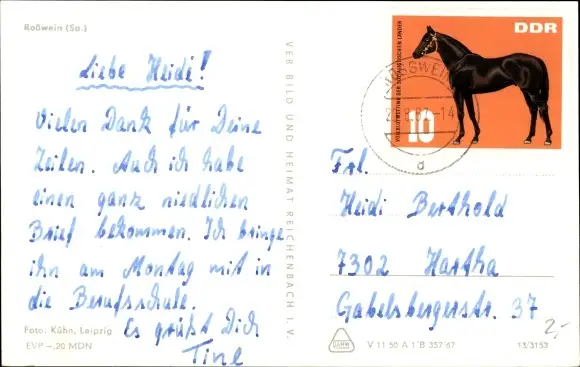 Roßwein (Sa.)
Liebe Heidi!
Vielen Dank für Deine
Zeilen. Auch ich habe
einen ganz niedlichen
Brief bekommen. Ich bringe
ihn am Montag mit in
die Berufsschule.
Es grüßt Dich
Tine
Foto: Kühn, Leipzig
EVP –.20 MDN
VEB BILD UND HEIMAT REICHENBACH I. V.
DDR
VOLLBLUTMEETING DER SOZIALISTISCHEN LÄNDER
10
ROSSWEIN
d
Frl.
Heidi Berthold
7302 Hartha
Gabelsbergerstr. 37
2,-
V 11 50 A 1 B 357/67
13/3153